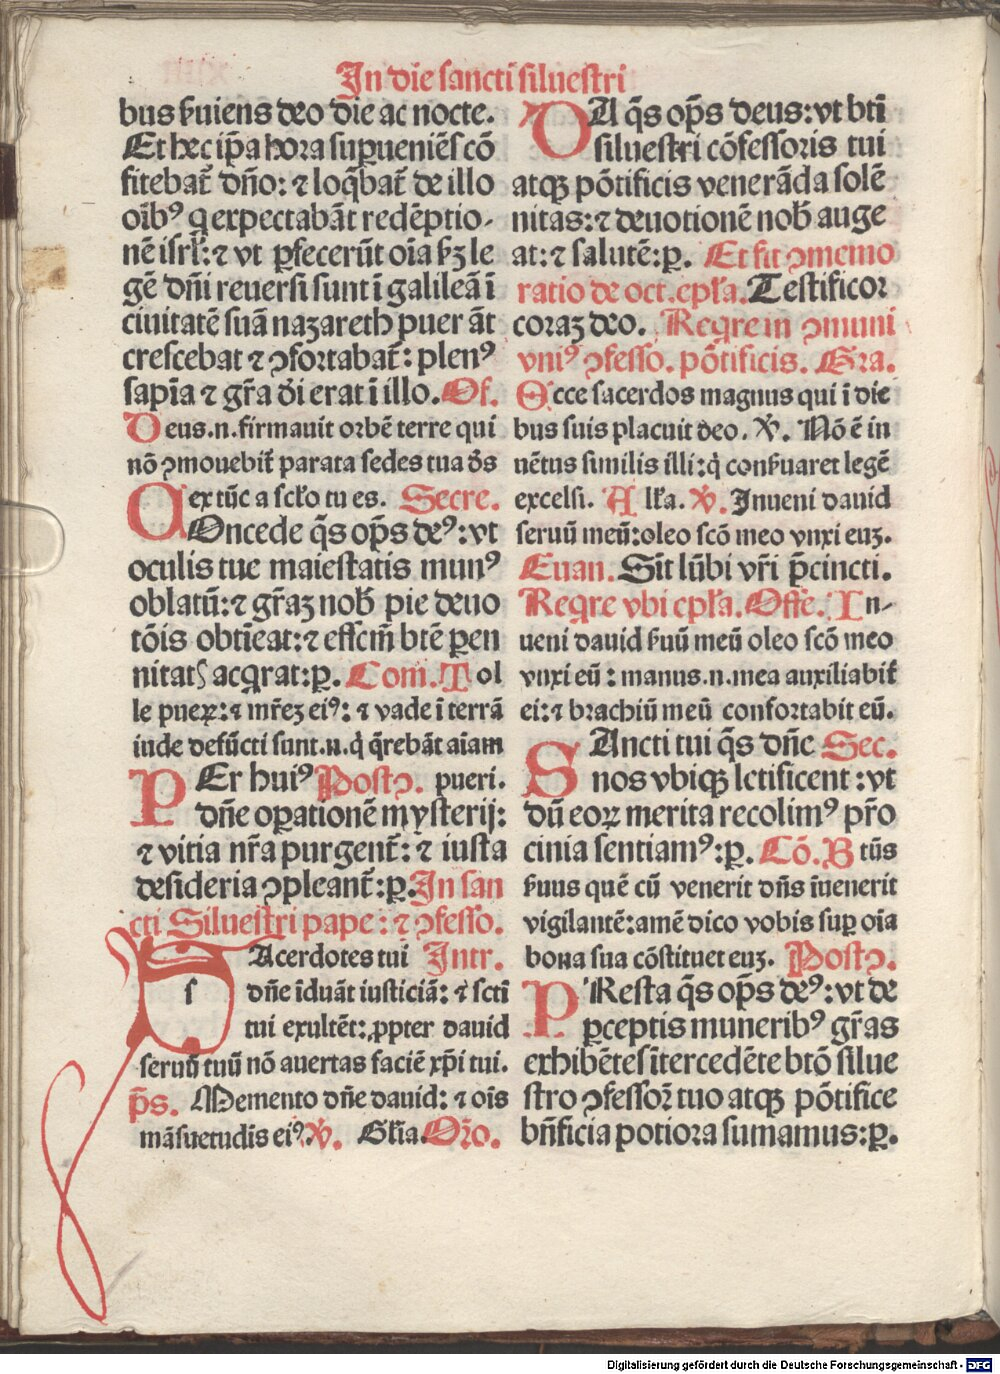 In die sancti siluestri
bus ẜuiens deo die ac nocte.
Et hec ip̄a hora sup̱ueniēs cō
fitebat᷑ dn̄o: ⁊ loq̄bat᷑ de illo
oīb⁹ q expectabāt redēptio-
nē isrł: ⁊ vt ꝑfecerūt oīa ẜʒ le
gē dn̄i reuersi sunt ī galileā ī
ciuitatē suā nazareth puer āt
crescebat ⁊ ↄfortabat᷑: plen⁹
sapīa ⁊ gr̄a d̄i erat ī illo. Of.
Deus.n.firmauit orbē terre qui
nō ↄmouebit᷑ parata sedes tua d̄s
ex tūc a scło tu es. Secre.
COncede q̄s op̄s de⁹: vt
oculis tue maiestatis mun⁹
oblatū: ⁊ gr̄aʒ nob̄ pie deuo
tōis obtīeat: ⁊ effcm̄ btē ꝑen
nitatꝭ acq̄rat: ꝑ. Com. Tol
le pueꝝ: ⁊ mr̄eʒ ei⁹: ⁊ vade ī terrā
iude defūcti sunt.n.q̇ q̄rebāt aīam
PEr hui⁹ Postↄ. pueri.
dn̄e oꝑationē mysterij:
⁊ vitia nr̄a purgent᷑: ⁊ iusta
desideria ↄpleant᷑: ꝑ. In san
cti Siluestri pape: ⁊ ↄfesso.
SAcerdotes tui Intr.
s dn̄e īduāt iusticiā: ⁊ scti
tui exultēt: ꝓpter dauid
seruū tuū nō auertas faciē xp̄i tui.
p̄s. Memento dn̄e dauid: ⁊ oīs
māsuetudis ei⁹. v̄. Głia. Or̄o.
DA q̄s op̄s deus: vt bti
siluestri cōfessoris tui
atqꝫ pōtificis venerāda solē
nitas: ⁊ deuotionē nob̄ auge
at: ⁊ salutē: ꝑ. Et fit ↄmemo
ratio de oct.epła. Testificor
coraʒ deo. Reqre in ↄmuni
vni⁹ ↄfesso. pōtificis. Gra.
Ecce sacerdos magnus qui ī die
bus suis placuit deo. v̄. Nō ē in
uētus similis illi: q̇ conẜuaret legē
excelsi. Ałła. v̄. Inueni dauid
seruū meū: oleo scō meo vnxi euʒ.
Euan. Sīt lūbi vr̄i p̄cincti.
Reqre vbi epła. Offe. In-
ueni dauid ẜuū meū oleo scō meo
vnxi eū: manus.n.mea auxiliabit᷑
ei: ⁊ brachiū meū confortabit eū.
SAncti tui q̄s dn̄e Sec.
nos vbiqꝫ letificent: vt
dū eoꝝ merita recolim⁹ pr̄o
cinia sentiam⁹: ꝑ. Cō. Btūs
ẜuus quē cū venerit dn̄s īuenerit
vigilantē: amē dico vobis suꝑ oīa
bona sua cōstituet euʒ. Postↄ.
PResta q̄s op̄s de⁹: vt de
ꝑceptis munerib⁹ gr̄as
exhibētes ītercedēte btō silue
stro ↄfessor̄ tuo atqꝫ pōtifice
bn̄ficia potiora sumamus: ꝑ.
Digitalisierung gefördert durch die Deutsche Forschungsgemeinschaft - DFG